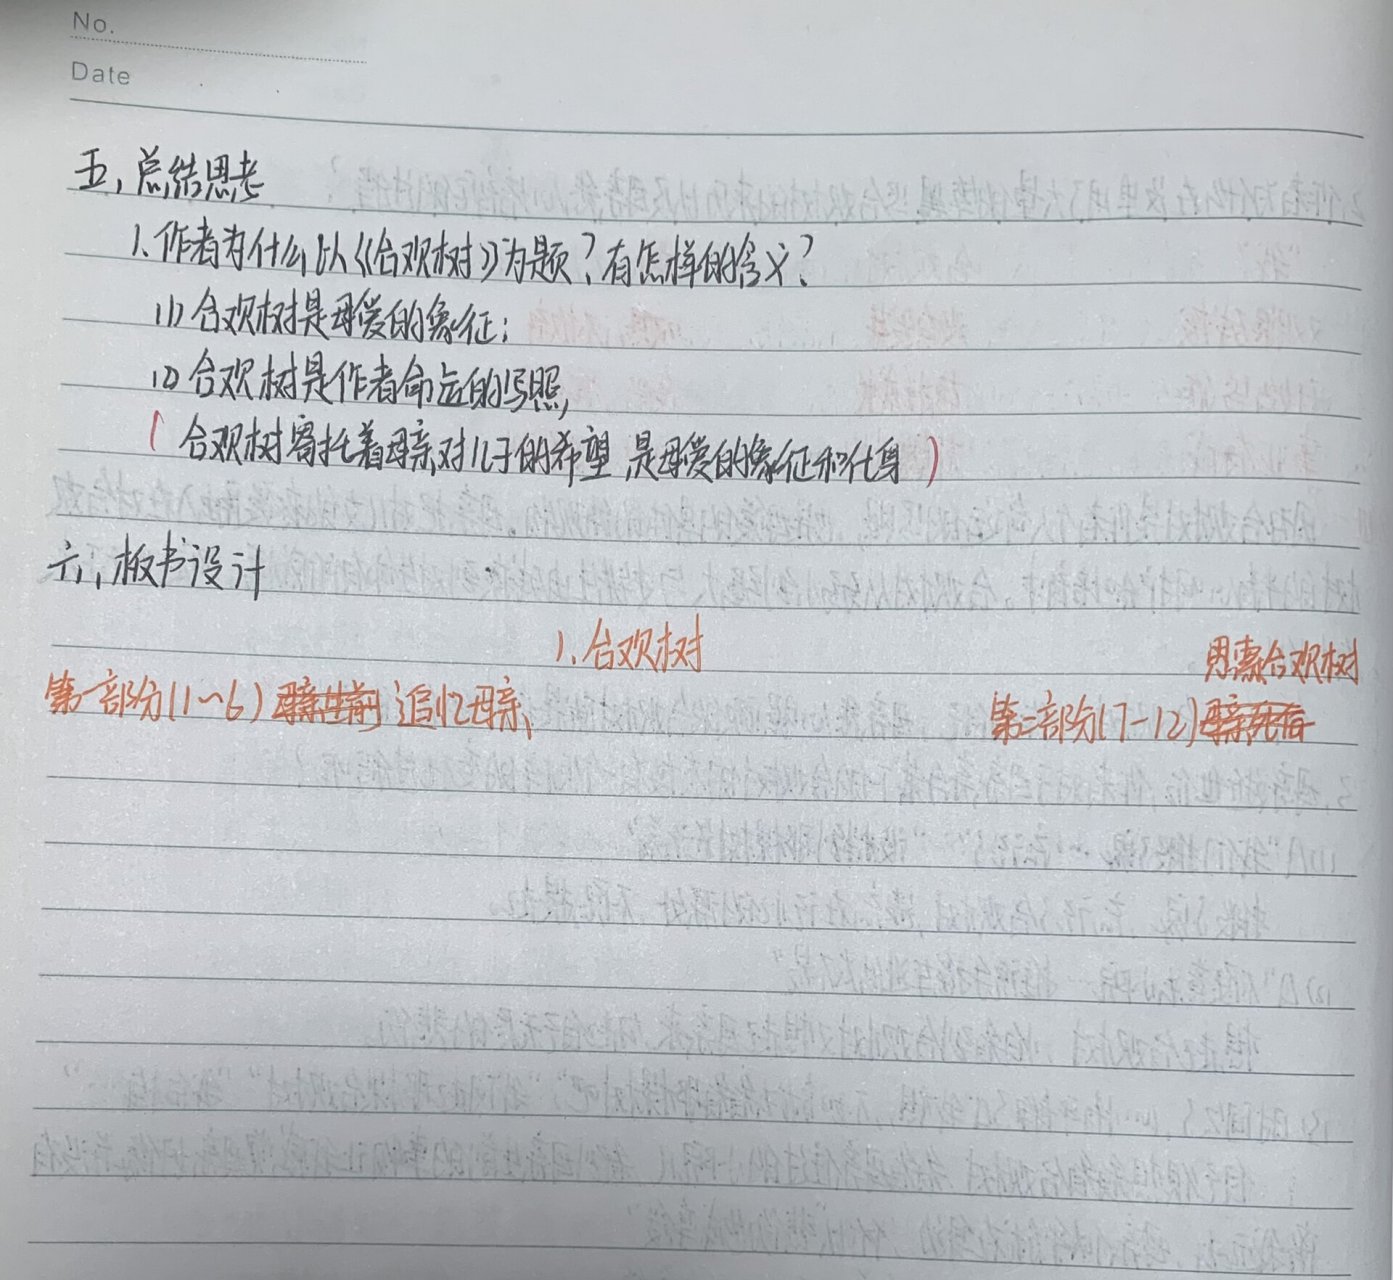 No.
Date
五、总结思考
1、作者为什么以《合欢树》为题？有怎样的含义？
(1) 合欢树是母爱的象征；
(2) 合欢树是作者命运的写照，
( 合欢树寄托着母亲对儿子的希望，是母爱的象征和化身 )
六、板书设计
1、合欢树
思索合欢树
第一部分(1~6) 母亲生前 追忆母亲、
第二部分(7-12) 母亲死后